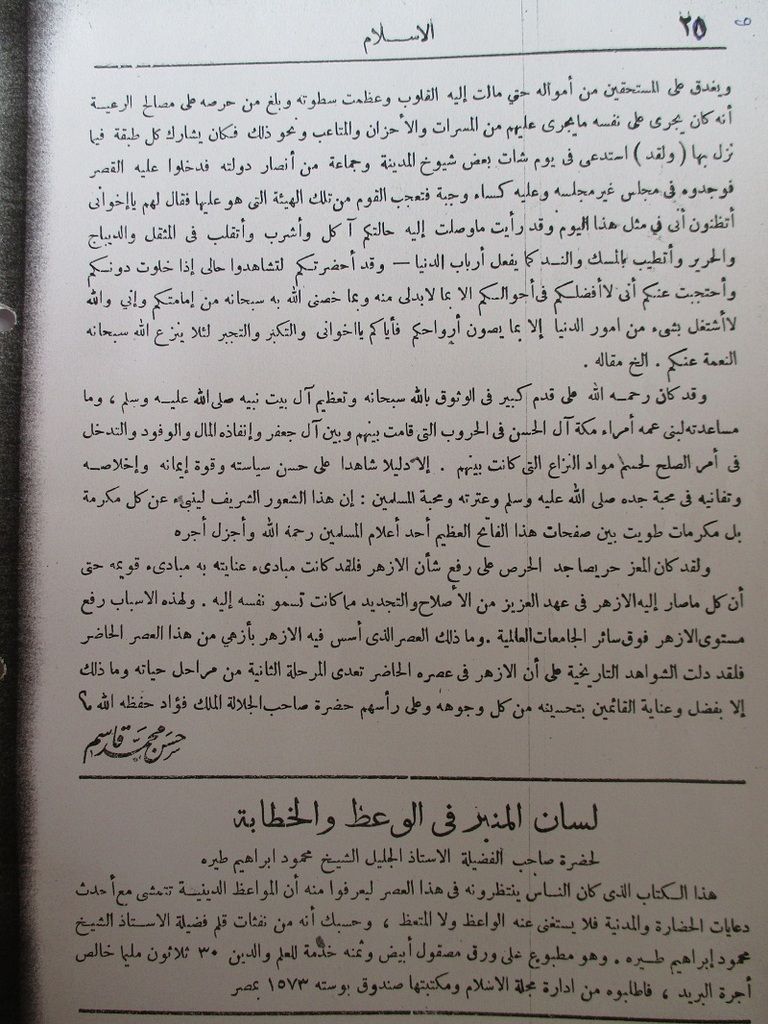 ٢٥
الاسلام
ويغدق على المستحقين من أمواله حتي مالت إليه القلوب وعظمت سطوته وبلغ من حرصه على مصالح الرعية
أنه كان يجرى على نفسه مايجرى عليهم من المسرات والأحزان والمتاعب ونحو ذلك فكان يشارك كل طبقة فيما
نزل بها ( ولقد ) استدعى فى يوم شات بعض شيوخ المدينة وجماعة من أنصار دولته فدخلوا عليه القصر
فوجدوه فى مجلس غير مجلسه وعليه كساء وجبة فتعجب القوم من تلك الهيئة التى هو عليها فقال لهم يا إخوانى
أتظنون أنى في مثل هذا اليوم وقد رأيت ماوصلت إليه حالتكم آكل وأشرب وأتقلب فى المثقل والديباج
والحرير وأتطيب بالمسك والنـد كما يفعل أرباب الدنيا — وقد أحضرتكم لتشاهدوا حالى إذا خلوت دونكم
وأحتجبت عنكم أنى لاأفضلكم فى أحوالكم الا بما لابدلى منه وبما خصنى الله به سبحانه من إمامتكم وإني والله
لاأشتغل بشىء من امور الدنيا إلا بما يصون أرواحكم فأياكم يااخوانى والتكبر والتجبر لئلا ينزع الله سبحانه
النعمة عنكم . الخ مقاله .
وقد كان رحمه الله على قدم كبير فى الوثوق بالله سبحانه وتعظيم آل بيت نبيه صلى الله عليه وسلم ، وما
مساعدته لبنى عمه أمراء مكة آل الحسن فى الحروب التى قامت بينهم وبين آل جعفر وإنفاذه المال والوفود والتدخل
فى أمر الصلح لحسم مواد النزاع التى كانت بينهم . إلا دليلا شاهدا على حسن سياسته وقوة إيمانه وإخلاصه
وتفانيه فى محبة جده صلى الله عليه وسلم وعترته ومحبة المسلمين : إن هذا الشعور الشريف لينبىء عن كل مكرمة
بل مكرمات طويت بين صفحات هذا الفاتح العظيم أحد أعلام المسلمين رحمة الله وأجزل أجره
ولقد كان المعز حريصا جد الحرص على رفع شأن الازهر فلقد كانت مبادىء عنايته به مبادىء قويمه حتى
أن كل ماصار إليه الازهر فى عهد العزيز من الأصلاح والتجديد مما كانت تسمو نفسه إليه . ولهذه الاسباب رفع
مستوى الازهر فوق سائر الجامعات العالمية . وما ذلك العصر الذى أسس فيه الازهر بأزهي من هذا العصر الحاضر
فلقد دلت الشواهد التاريخية على أن الازهر فى عصره الحاضر تعدى المرحلة الثانية من مراحل حياته وما ذلك
إلا بفضل وعناية القائمين بتحسينه من كل وجوهه وعلى رأسهم حضرة صاحب الجلالة الملك فؤاد حفظه الله ؟
حسن محمد قاسم
لسان المنبر فى الوعظ والخطابة
لحضرة صاحب الفضيلة الاستاذ الجليل الشيخ محمود ابراهيم طيره
هذا الكتاب الذى كان الناس ينتظرونه فى هذا العصر ليعرفوا منه أن المواعظ الدينية تتمشى مع أحدث
دعايات الحضارة والمدنية فلا يستغنى عنه الواعظ ولا المتعظ ، وحسبك أنه من نفثات قلم فضيلة الاستاذ الشيخ
محمود إبراهيم طيره . وهو مطبوع على ورق مصقول أبيض وثمنه خدمة للعلم والدين ٣٠ ثلاثون مليما خالص
أجرة البريد ، فاطلبوه من ادارة مجلة الاسلام ومكتبتها صندوق بوسته ١٥٧٣ بمصر